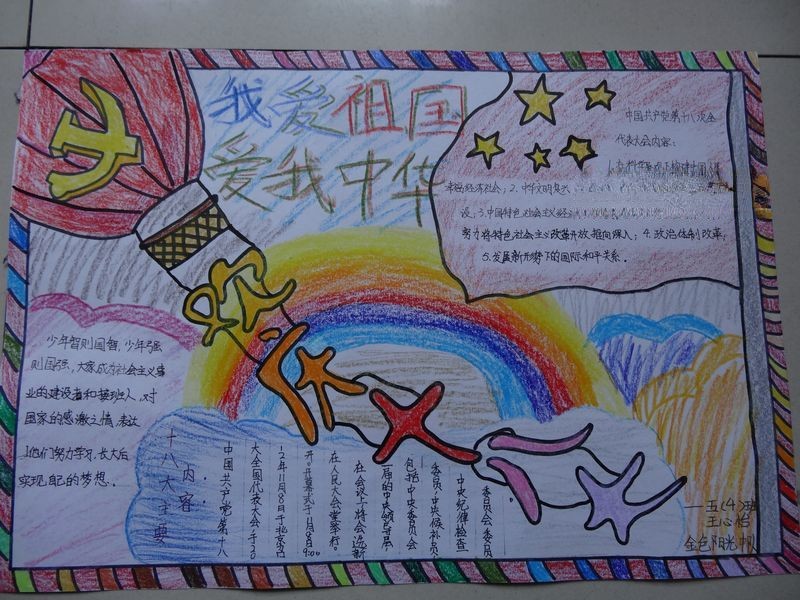 我爱祖国
爱我中华
中国共产党第十八次全
代表大会内容：
来临经济社会；2、中华文明
设；3.中国特色社会主义经
努力将特色社会主义改革开放推向深入；4.政治体制改革；
5.发展新形势下的国际和平关系。
欢庆十八大
少年智则国智，少年强
则国强，大家成为社会主义事
业的建设者和接班人，对
国家的感激之情，表达
他们努力学习，长大后
实现自己的梦想。
十八大主要
内容：
中国共产党第十八
大全国代表大会，于20
12年11月8日于北京召
开。开幕式于11月8日9:00
在人民大会堂举行。
在会议上将会选新
一届的中央领导层
包括中央委员会
委员，中央候补委员，
中央纪律检查
委员会委员。
一五(4)班
王心怡
金色阳光中队